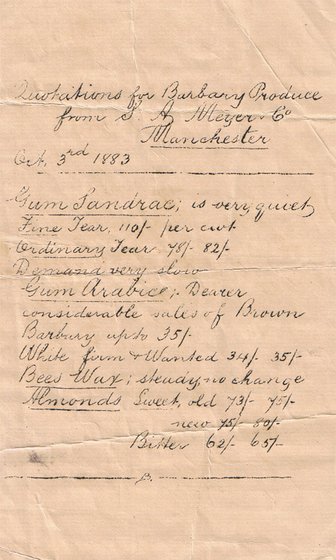 Quotations for Barbary Produce
from S. A. Meyer & Co
Manchester
Oct. 3rd 1883
Gum Sandrac; is very quiet
Fine Tear, 110/- per cwt
Ordinary Tear 78/- 82/-
Demand very slow
Gum Arabic; - Dearer
considerable sales of Brown
Barbary up to 35/-
White firm & Wanted 34/- 35/-
Bees Wax; steady, no change
Almonds Sweet, old 73/- 75/-
new 75/- 80/-
Bitter 62/- 65/-